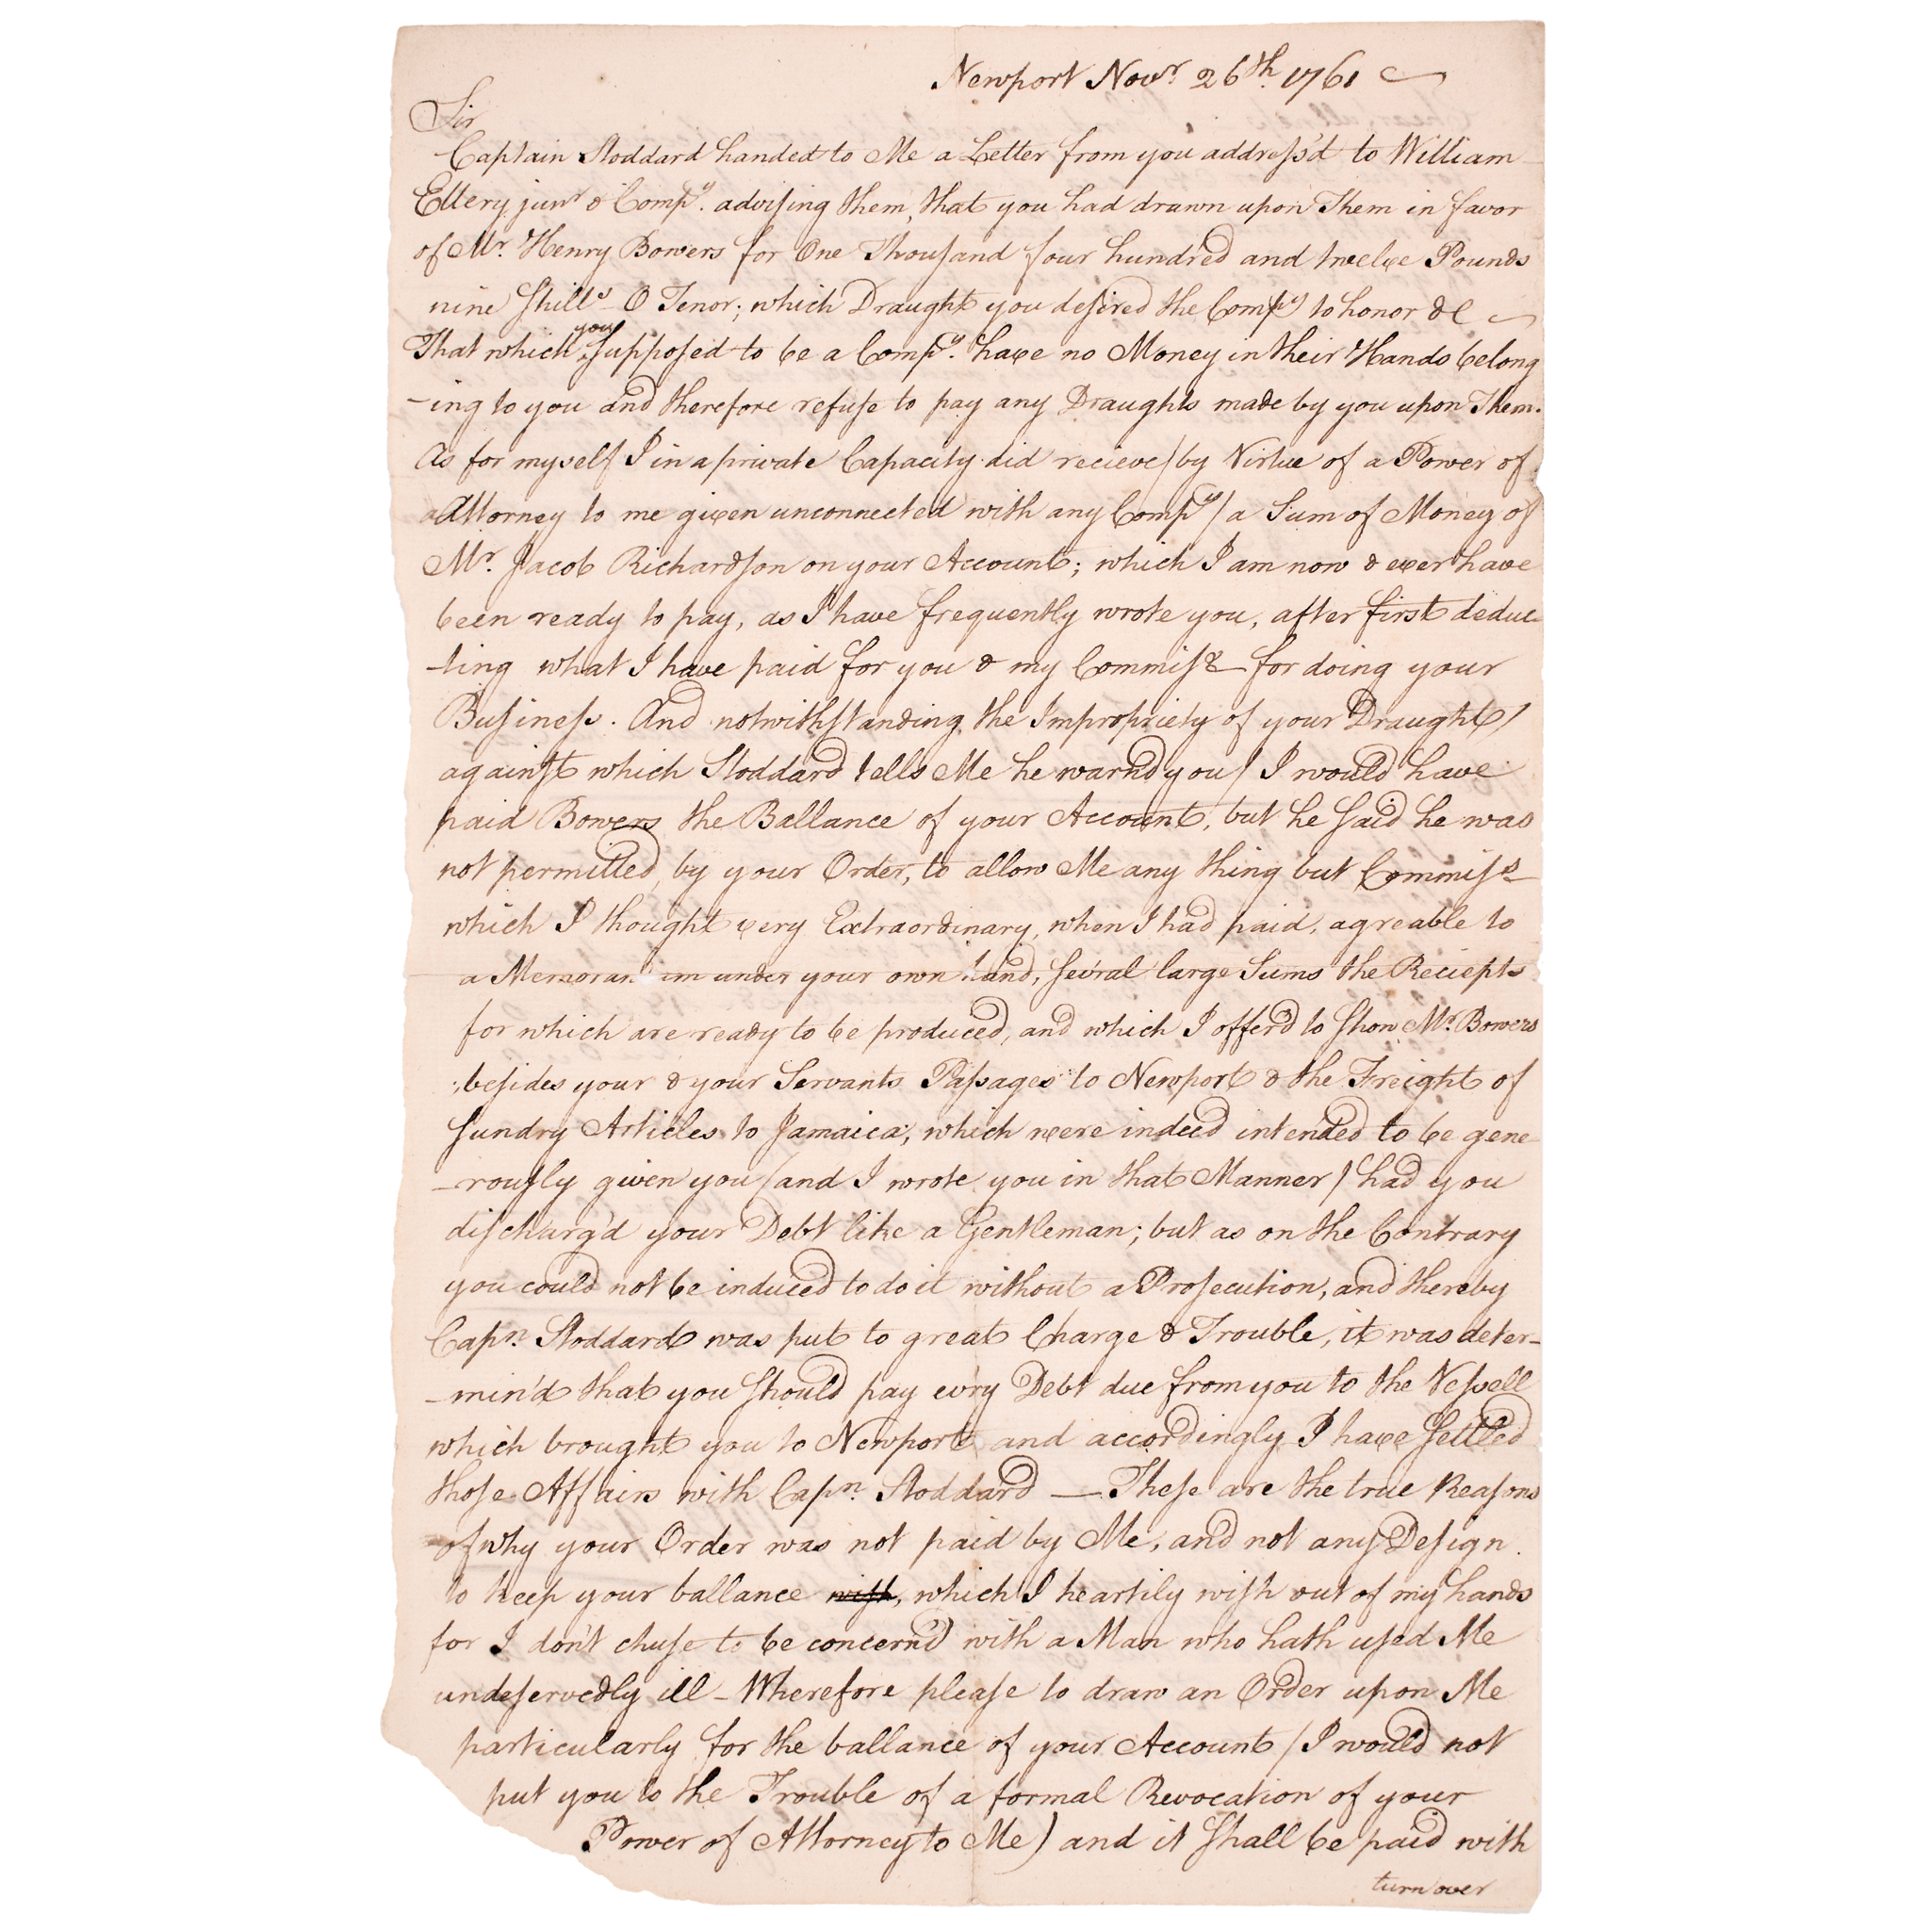 Newport Novr. 26th. 1761
Sir
Captain Stoddard handed to Me a Letter from you address'd to William
Ellery junr & Compy. advising them, that you had drawn upon Them in favor
of Mr. Henry Bowers for One Thousand four hundred and twelve Pounds
nine Shills O Tenor; which Draught you desired the Compy to honor &c
That which you supposed to be a Compy. have no Money in their Hands belong
-ing to you and therefore refuse to pay any Draughts made by you upon Them.
As for myself I in a private Capacity did recieve / by Virtue of a Power of
Attorney to me given unconnected with any Compy / a Sum of Money of
Mr. Jacob Richardson on your Account; which I am now & ever have
been ready to pay, as I have frequently wrote you, after first deduc-
-ting what I have paid for you & my Commiss for doing your
Business. And notwithstanding the Impropriety of your Draught /
against which Stoddard tells Me he warn'd you / I would have
paid Bowers the Ballance of your Account, but he said he was
not permitted, by your Order, to allow Me any thing but Commiss
which I thought very Extraordinary, when I had paid, agreable to
a Memorandum under your own hand, sev'ral large Sums the Reciepts
for which are ready to be produced, and which I offer'd to show Mr. Bowers
besides your & your Servants Passages to Newport & the Freight of
Sundry Articles to Jamaica, which were indeed intended to be gene
-rously given you / and I wrote you in that Manner / had you
discharg'd your Debt like a Gentleman; but as on the Contrary
you could not be induced to do it without a Prosecution, and thereby
Capn. Stoddard was put to great Charge & Trouble, it was deter-
-min'd that you should pay ev'ry Debt due from you to the Vessell
which brought you to Newport and accordingly I have settled
those Affairs with Capn. Stoddard — These are the true Reasons
of why your Order was not paid by Me, and not any Design
to keep your ballance wish, which I heartily wish out of my hands
for I don't chuse to be concern'd with a Man who hath used Me
undeservedly ill - Wherefore please to draw an Order upon Me
particularly for the ballance of your Account / I would not
put you to the Trouble of a formal Revocation of your
Power of Attorney to Me) and it shall be paid with
turn over